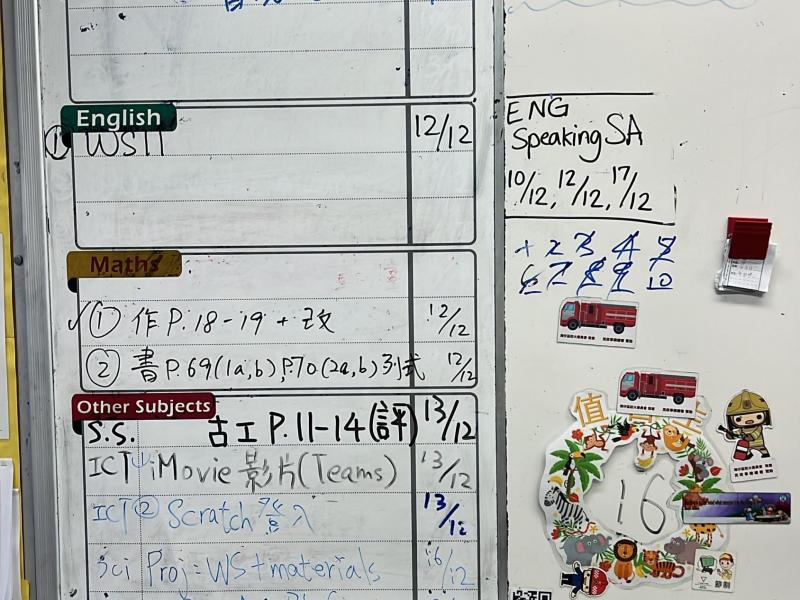 English
① WS11 12/12
Maths
✓① 作 P.18-19 + 改 12/12
② 書 P.69(1a,b), P.70(2a,b) 列式 12/12
Other Subjects
S.S. 古工 P.11-14(評) 13/12
ICT iMovie 影片(Teams) 13/12
ICT② Scratch 13/12
Sci Proj: WS + materials 16/12
ENG
Speaking SA
10/12, 12/12, 17/12
1 2 3 4 5
6 7 8 9 10
值 生
16